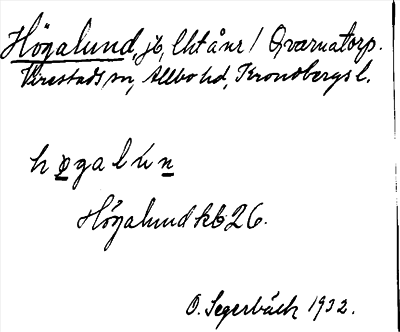 Högalund, jb, lht å nr 1 Qvarnatorp.
Virestads sn, Allbo hd, Kronobergs l.
h ø g a l ú n
Högalund kb 26.
O. Segerbäck 1932.